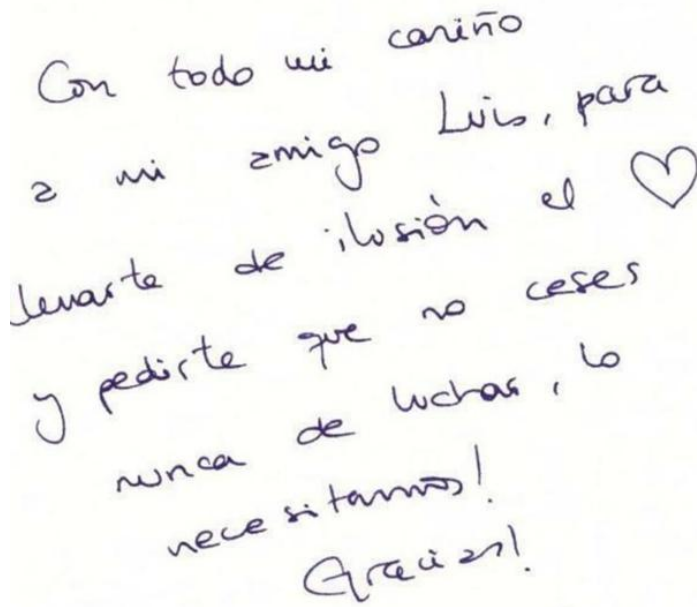 Con todo mi cariño
a mi amigo Luis, para
llenarte de ilusión el ♡
y pedirte que no ceses
nunca de luchar, lo
necesitamos!
Gracias!